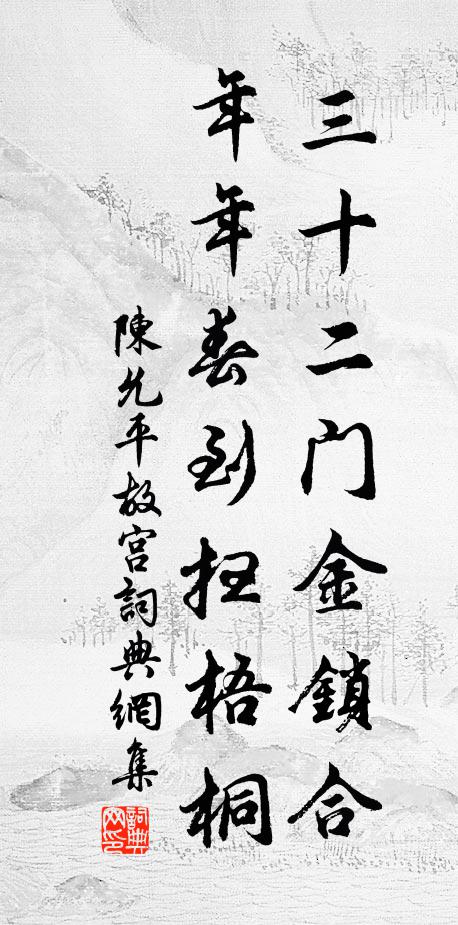 三十二门金鎖合
年年春到抂梧桐
陳允平故宮詞典網集
詞典
网印